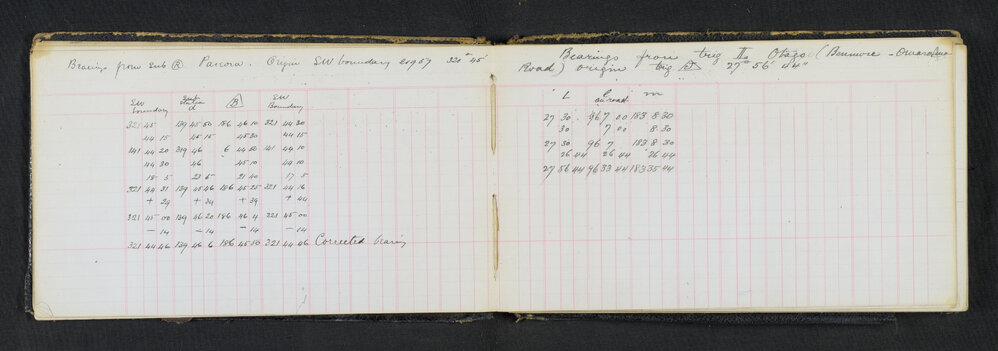 Bearings from Sub (R) Pareora. Origin SW boundary sec 57 321° 45'
SW boundary Sub station d (B) SW Boundary
321 45 139 45 50 186 46 10 321 44 30
44 15 45 15 45 30 44 15
141 44 20 319 46 6 44 50 141 44 10
44 30 46 45 10 44 10
18 5 23 5 21 40 17 5
321 44 31 139 45 46 186 45 25 321 44 16
+ 29 + 34 + 39 + 44
321 45 00 139 46 20 186 46 4 321 45 00
- 14 - 14 - 14 - 14
321 44 46 139 46 6 186 45 50 321 44 46 Corrected bearing
Bearings from trig II Otago (Benmore - Omarama
Road) origin trig D 27° 56' 44"
L G on road m
27 30 96 7 00 183 8 30
30 7 00 8 30
27 30 96 7 183 8 30
26 44 26 44 26 44
27 56 44 96 33 44 183 35 44